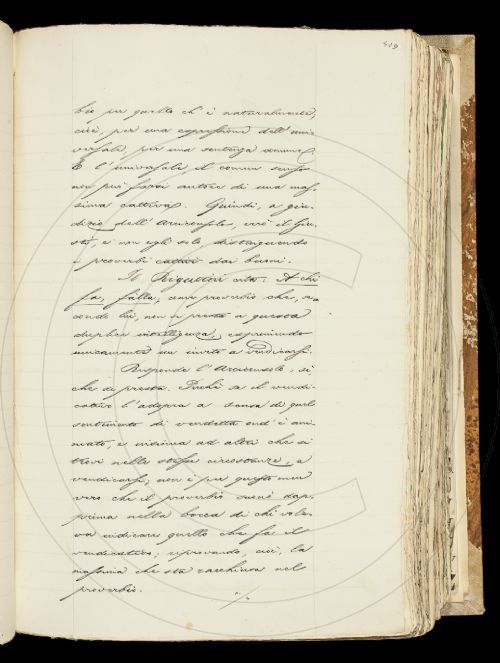 419
bio per quello ch'è naturalmente,
cioè, per una espressione dell'uni-
versale, per una sentenza comune.
E l'universale, il comun senso
non può farsi autore di una mas-
sima cattiva. Quindi, a giu-
dizio dell'Arciconsolo, errò il Giu-
sti, e non egli solo, distinguendo
i proverbi cattivi dai buoni.
Il Rigutini cita: A chi
fa, falla, come proverbio che, se-
condo lui, non si presta a questa
duplice intelligenza, esprimendo
unicamente un invito a vendicarsi.
Risponde l'Arciconsolo, sì
che si presta. Poichè se il vendi-
cativo l'adopra a scusa di quel
sentimento di vendetta ond'è ani-
mato, e insinua ad altri che si
trovi nelle stesse circostanze, a
vendicarsi; non è per questo men
vero che il proverbio suonò dap-
prima nella bocca di chi vole-
va indicare quello che fa il
vendicativo; riprovando, cioè, la
massima che sta racchiusa nel
proverbio.